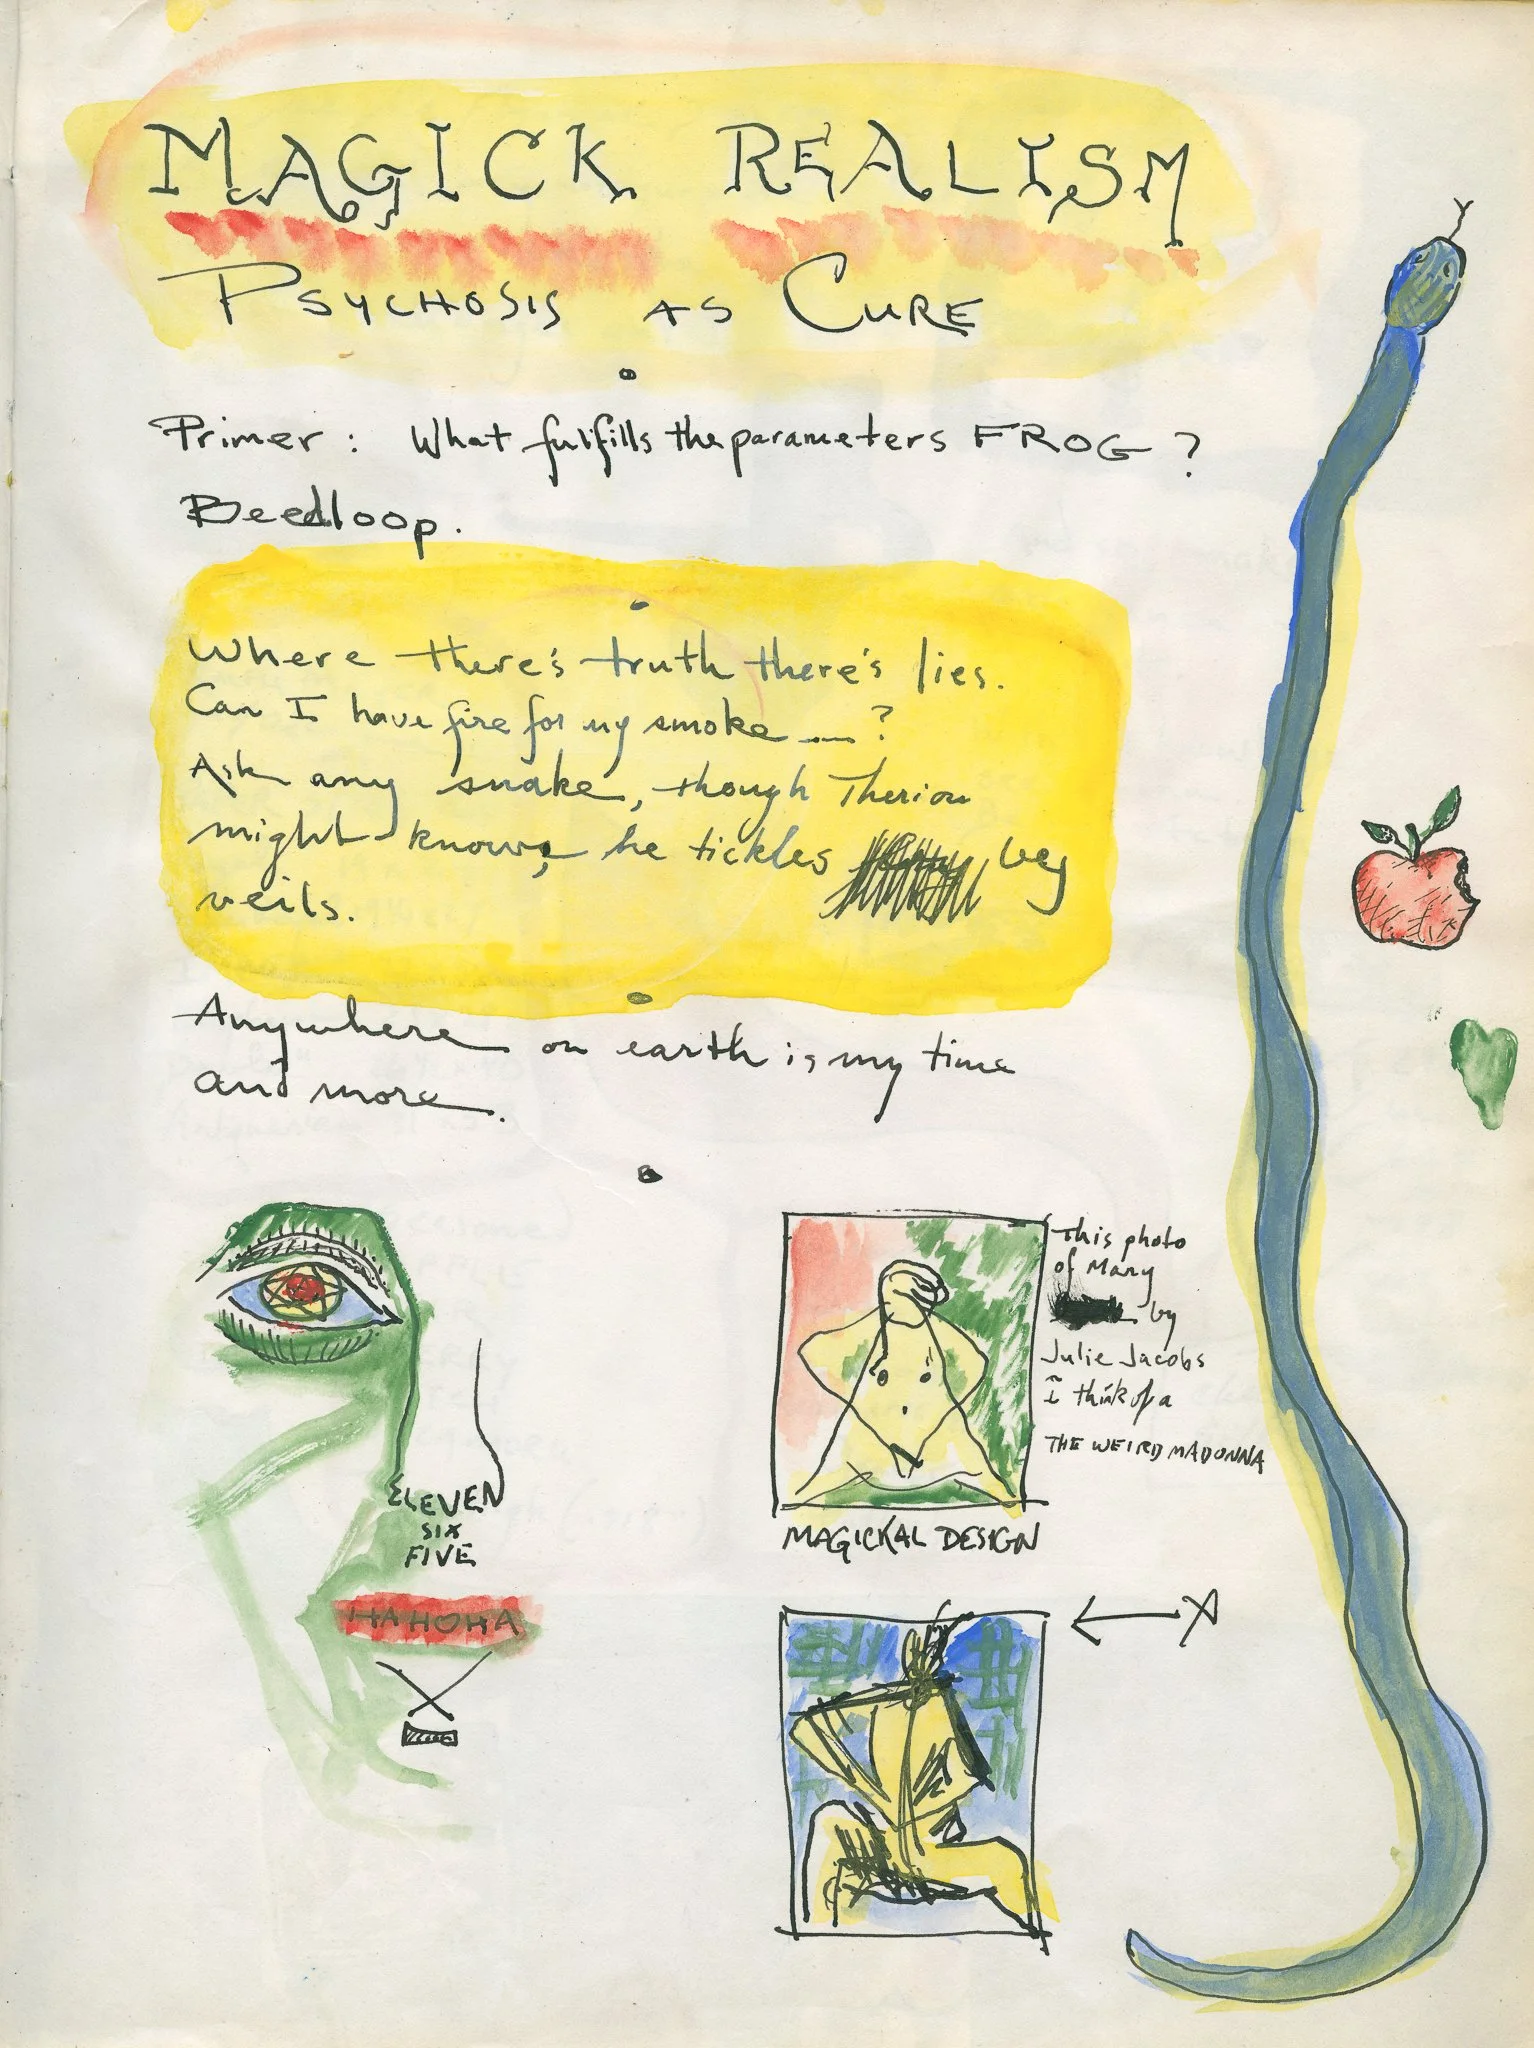 MAGICK REALISM
PSYCHOSIS AS CURE
Primer: What fulfills the parameters FROG?
Beedloop.
Where there's truth there's lies.
Can I have fire for my smoke __?
Ask any snake, though Therion
might know, he tickles
veils.
Anywhere on earth is my time
and more.
This photo
of Mary
by
Julie Jacobs
I think of a
THE WEIRD MADONNA
ELEVEN
SIX
FIVE
MAGICKAL DESIGN
HAHOHA